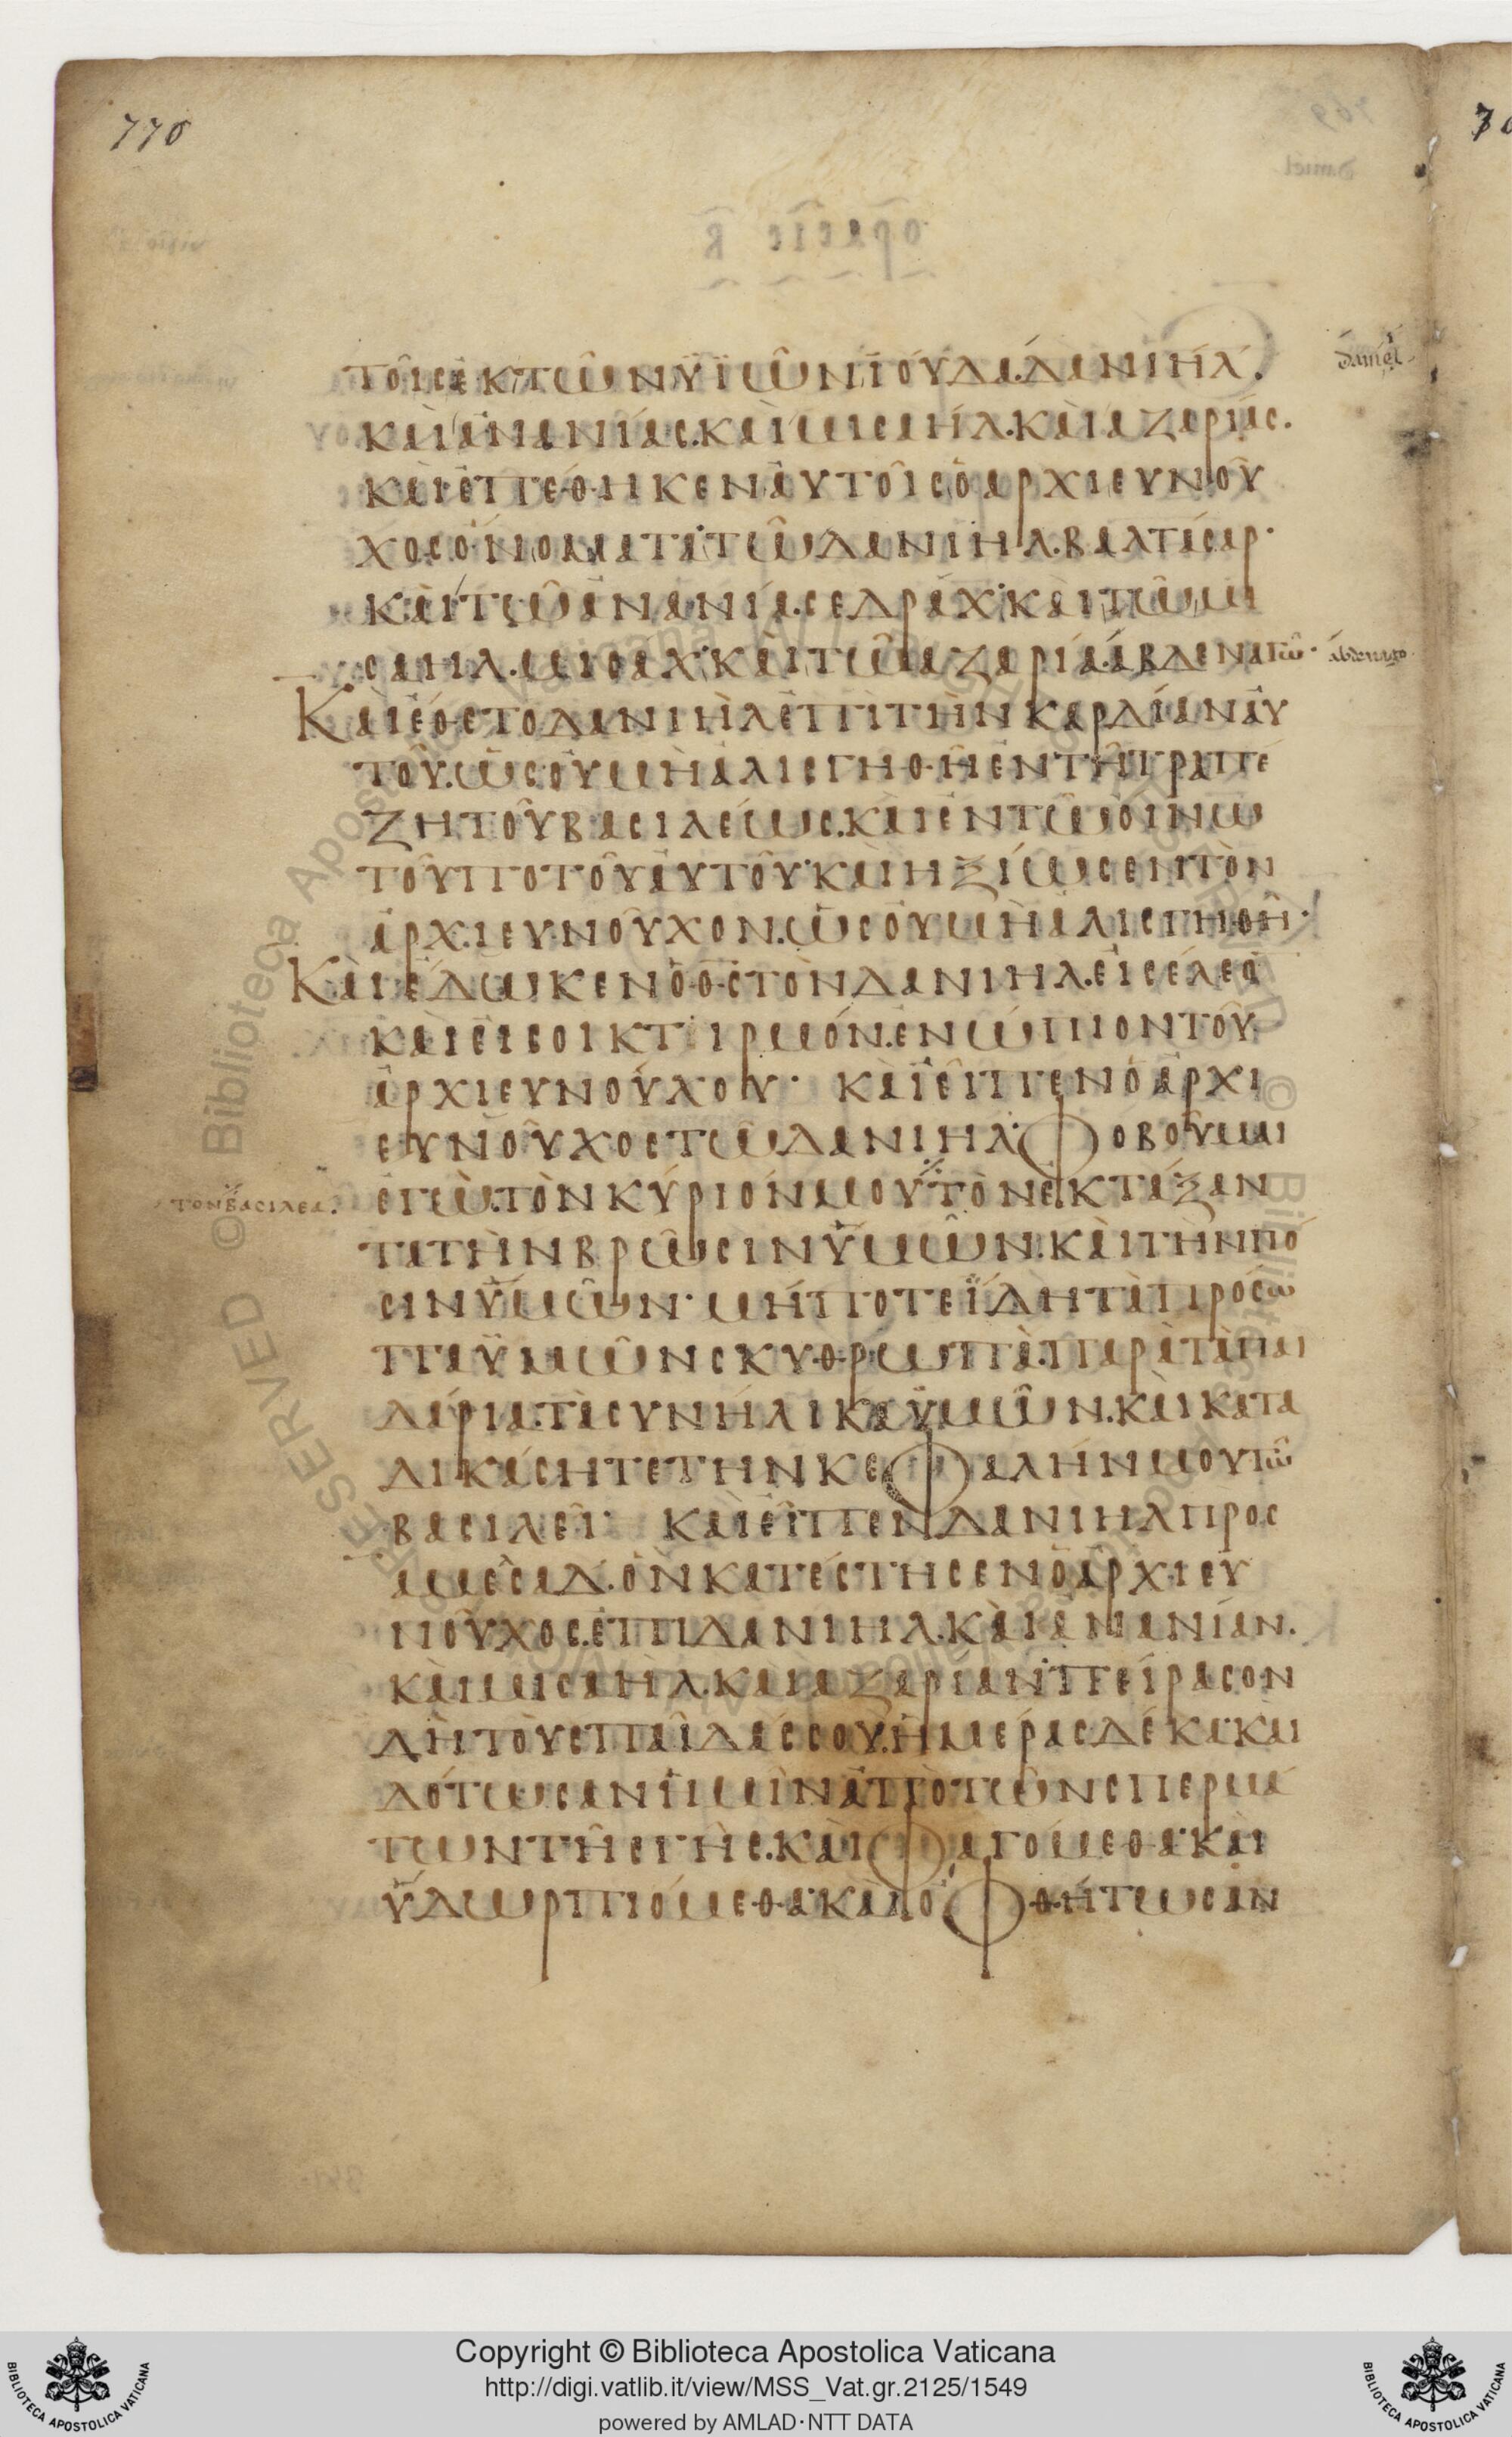 770
τοῖσ ἐκ τῶν ϋϊῶν ϊούδα. δανιήλ.
daniel
καὶ ἀνανίας. καὶ μισαήλ. καὶ ἀζαρίας.
καὶ ἐπέθηκεν αὐτοῖς ὁ ἀρχιευνοῦ
χος ὀνόματα· τῶ δανιὴλ. βαλτάσαρ·
καὶ τῶ ἀνανία. σεδράχ· καὶ τῶ μι
σαηλ. μισάχ· καὶ τῶ ἀζαρία. ἀβδεναγω·
Καὶ ἔθετο δανιὴλ ἐπὶ τὴν καρδίαν αὐ
τοῦ. ὡς οὐ μὴ ἀλισγηθῆ ἐν τῆ τραπέ
ζη τοῦ βασιλέως. καὶ ἐν τῶ οἴνω
τοῦ ποτοῦ αὐτοῦ· καὶ ηξίωσεν τὸν
ἀρχιευνοῦχον. ὡς οὐ μὴ ἀλισγηθῆ·
Καὶ ἔδωκεν ὁ θς τὸν δανιηλ. εἰς ἔλεο
καὶ εἰς οικτιρμόν. ἐνώπιον τοῦ
ἀρχιευνούχου· καὶ εἶπεν ὁ ἀρχι
ευνοῦχος τῶ δανιήλ· φοβοῦμαι
τον βασιλεα. ἐγὼ. τὸν κύριόν μου τὸν ἐκτάξαν
τα τὴν βρῶσιν ϋμῶν. καὶ τὴν πό
σιν ϋμῶν· μήποτε ἴδη τὰ πρόσω
πα ϋμῶν σκυθρωπὰ. παρὰ τὰ παι
δάρια. τὰ συνήλικα ϋμῶν. καὶ κατα
δικάσητε τὴν κεφαλήν μου τῶ
βασιλεῖ· καὶ εἶπεν δανιηλ προς
αμεσαδ. ὃν κατέστησεν ὁ ἀρχιευ
νοῦχος. ἐπι δανιηλ. καὶ ἀνανίαν.
καὶ μισαὴλ. καὶ ἀζαριαν· πείρασον
δὴ τοὺς παῖδάς σου. ἡμέρας δέκα· καὶ
δότωσαν ἡμῖν ἀπὸ τῶν σπερμά
των τῆς γῆς. καὶ φαγόμεθα· καὶ
ὕδωρ πιόμεθα· καὶ ὀφθήτωσαν
Copyright © Biblioteca Apostolica Vaticana
http://digi.vatlib.it/view/MSS_Vat.gr.2125/1549
powered by AMLAD·NTT DATA
BIBLIOTECA APOSTOLICA VATICANA
BIBLIOTECA APOSTOLICA VATICANA